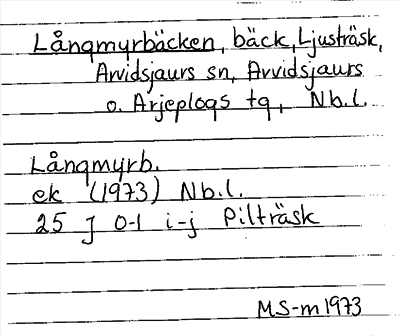 Långmyrbäcken, bäck, Ljusträsk,
Arvidsjaurs sn, Arvidsjaurs
o. Arjeplogs tg, Nb.l.
Långmyrb.
ek (1973) Nb.l.
25 J 0-1 i-j Pilträsk
MS-m 1973